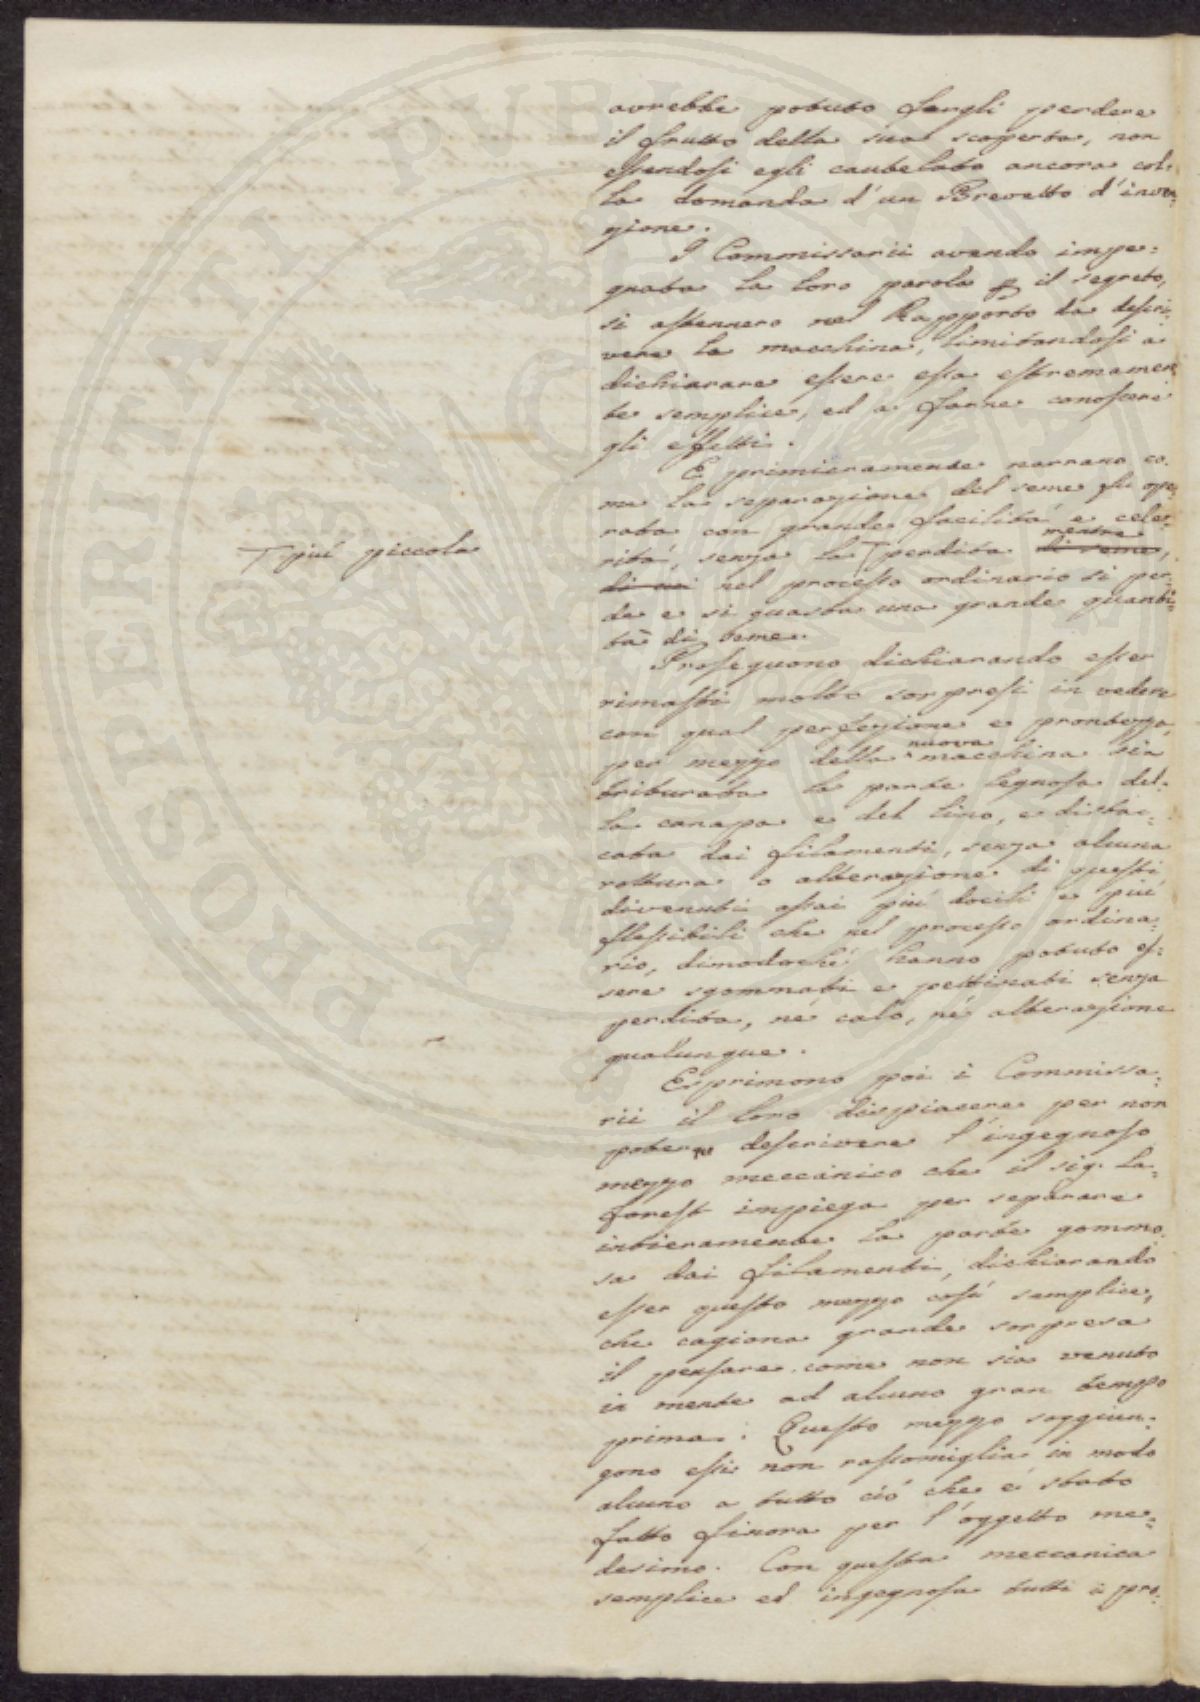 avrebbe potuto fargli perdere
il frutto della sua scoperta, non
essendosi egli cautelato ancora col-
la domanda d'un Brevetto d'inven-
zione.
I Commissarii avendo impe=
gnata la loro parola p il segreto,
si astennero nel Rapporto da descri-
vere la macchina, limitandosi a
dichiarare essere essa estremamen
te semplice, ed a farne conoscere
gli effetti.
E primieramente narrano co-
me la separazione del seme fu ope-
rata con grande facilità e cele-
rità, senza la ⊤ perdita di seme, mentre
⊤ più piccola
di cui nel processo ordinario si per-
de e si guasta una grande quanti=
tà di seme.
Proseguono dichiarando esser
rimasti molto sorpresi in vedere
con qual perfezione e prontezza,
per mezzo della nuova macchina sia
triturata la parte legnosa del-
la canapa e del lino, e distac=
cata dai filamenti, senza alcuna
rottura o alterazione di questi
divenuti assai più docili e più
flessibili che nel processo ordina-
rio, dimodoché hanno potuto es=
sere sgommati e pettinati senza
perdita, né calo, né alterazione
qualunque.
Esprimono poi i Commissa=
rii il loro dispiacere per non
poter descrivere l'ingegnoso
mezzo meccanico che il sig. La=
forest impiega per separare
intieramente la parte gommo-
sa dai filamenti, dichiarando
esser questo mezzo così semplice,
che cagiona grande sorpresa
il pensare come non sia venuto
in mente ad alcuno gran tempo
prima: Questo mezzo soggiun=
gono essi non rassomiglia in modo
alcuno a tutto ciò che è stato
fatto finora per l'oggetto me=
desimo. Con questa meccanica
semplice ed ingegnosa tutti i pro=
PROSPERITATI PUBLICAE